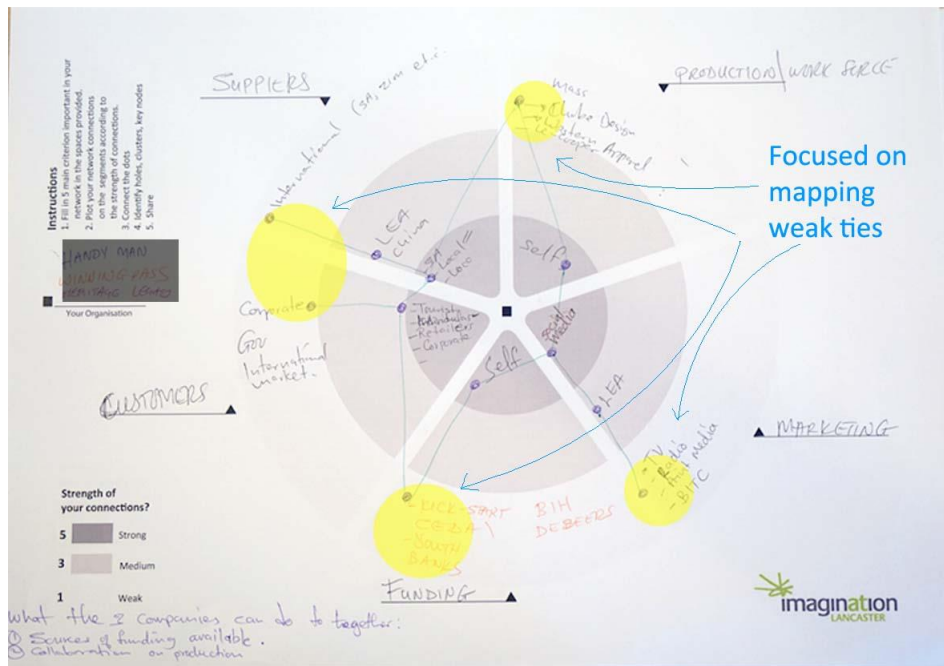 SUPPLIERS
PRODUCTION/WORK FORCE
Instructions
1. Fill in 5 main criterion important in your
network in the spaces provided.
2. Plot your network connections
on the segments according to
the strength of connections.
3. Connect the dots
4. Identify holes, clusters, key nodes
5. Share
HANDY MAN
WINNING PASS
HERITAGE
Your Organisation
International (SA, zim etc.
LEA
China
SA
Local
Loco
Mass
Chuba Design
Western Apparel
Self
Focused on
mapping
weak ties
Corporate
Gov
International
market.
- Tourists
- Individuals
- Retailers
- Corporate
-
Social
media
Self
LEA
CUSTOMERS
MARKETING
- TV
- Radio
- Print media
- BITC
- KICK-START
CEDA
- SOUTH
BANKS
BIH
DEBEERS
FUNDING
Strength of
your connections?
5 Strong
3 Medium
1 Weak
imagination
LANCASTER
What the 2 companies can do to together:
① Sources of funding available.
② Collaboration on production